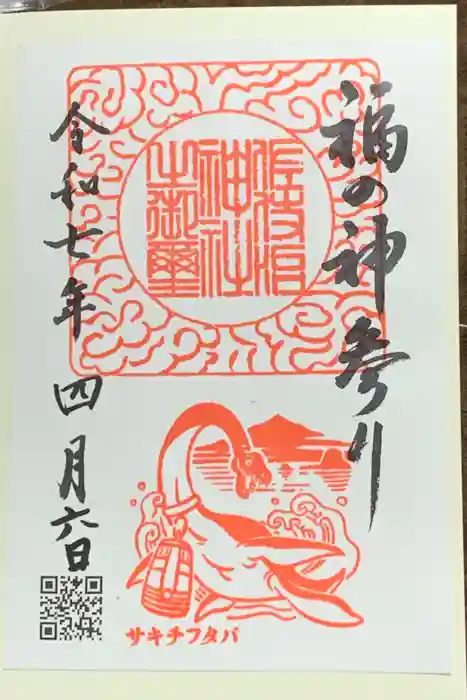 福の神参り
神社
之御璽
令和七年 四月六日
サキチフタバ